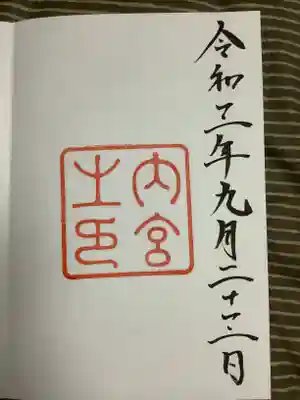 令和二年九月二十三日
内宮
之印